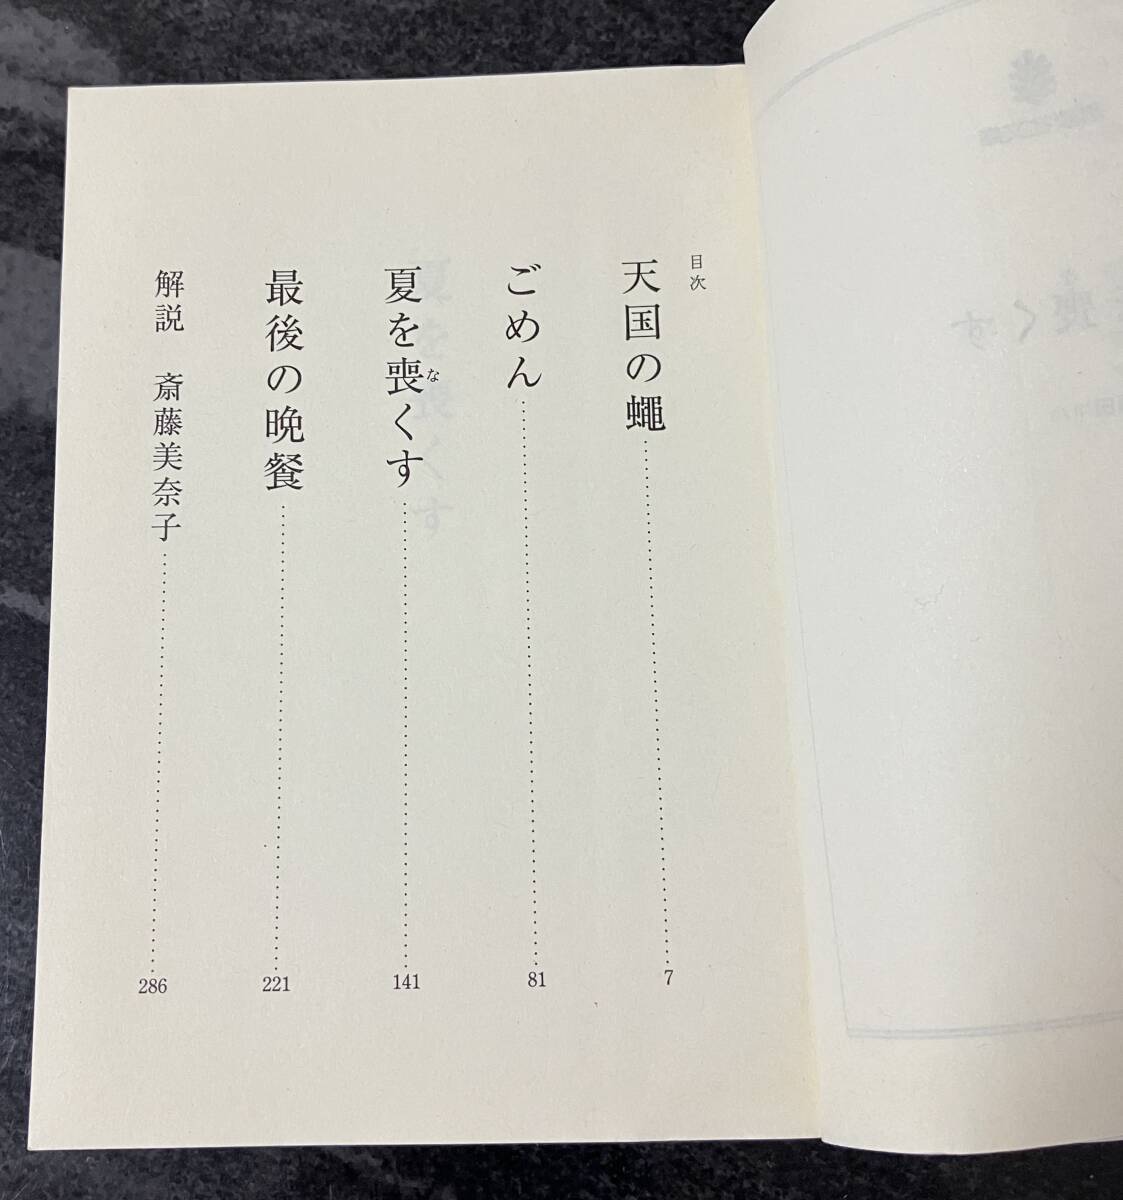 目次
天国の蠅 7
ごめん 81
夏を喪くす 141
な
最後の晩餐 221
解説 斎藤美奈子 286